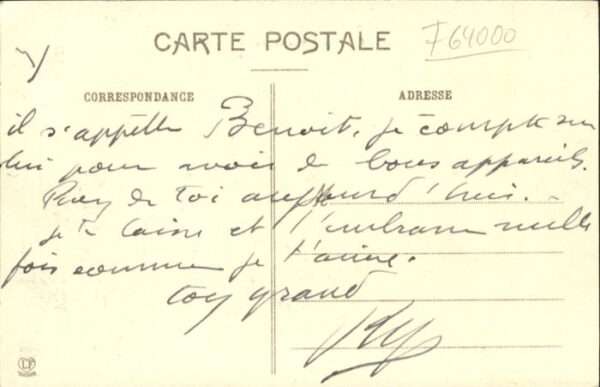 CARTE POSTALE
764000
CORRESPONDANCE
ADRESSE
il s'appelle Benoit, je compte sur
lui pour avoir de bons appareils.
de toi aujourd'hui.
je te laisse et t'embrasse mille
fois comme je t'aime.
ton grand
LF